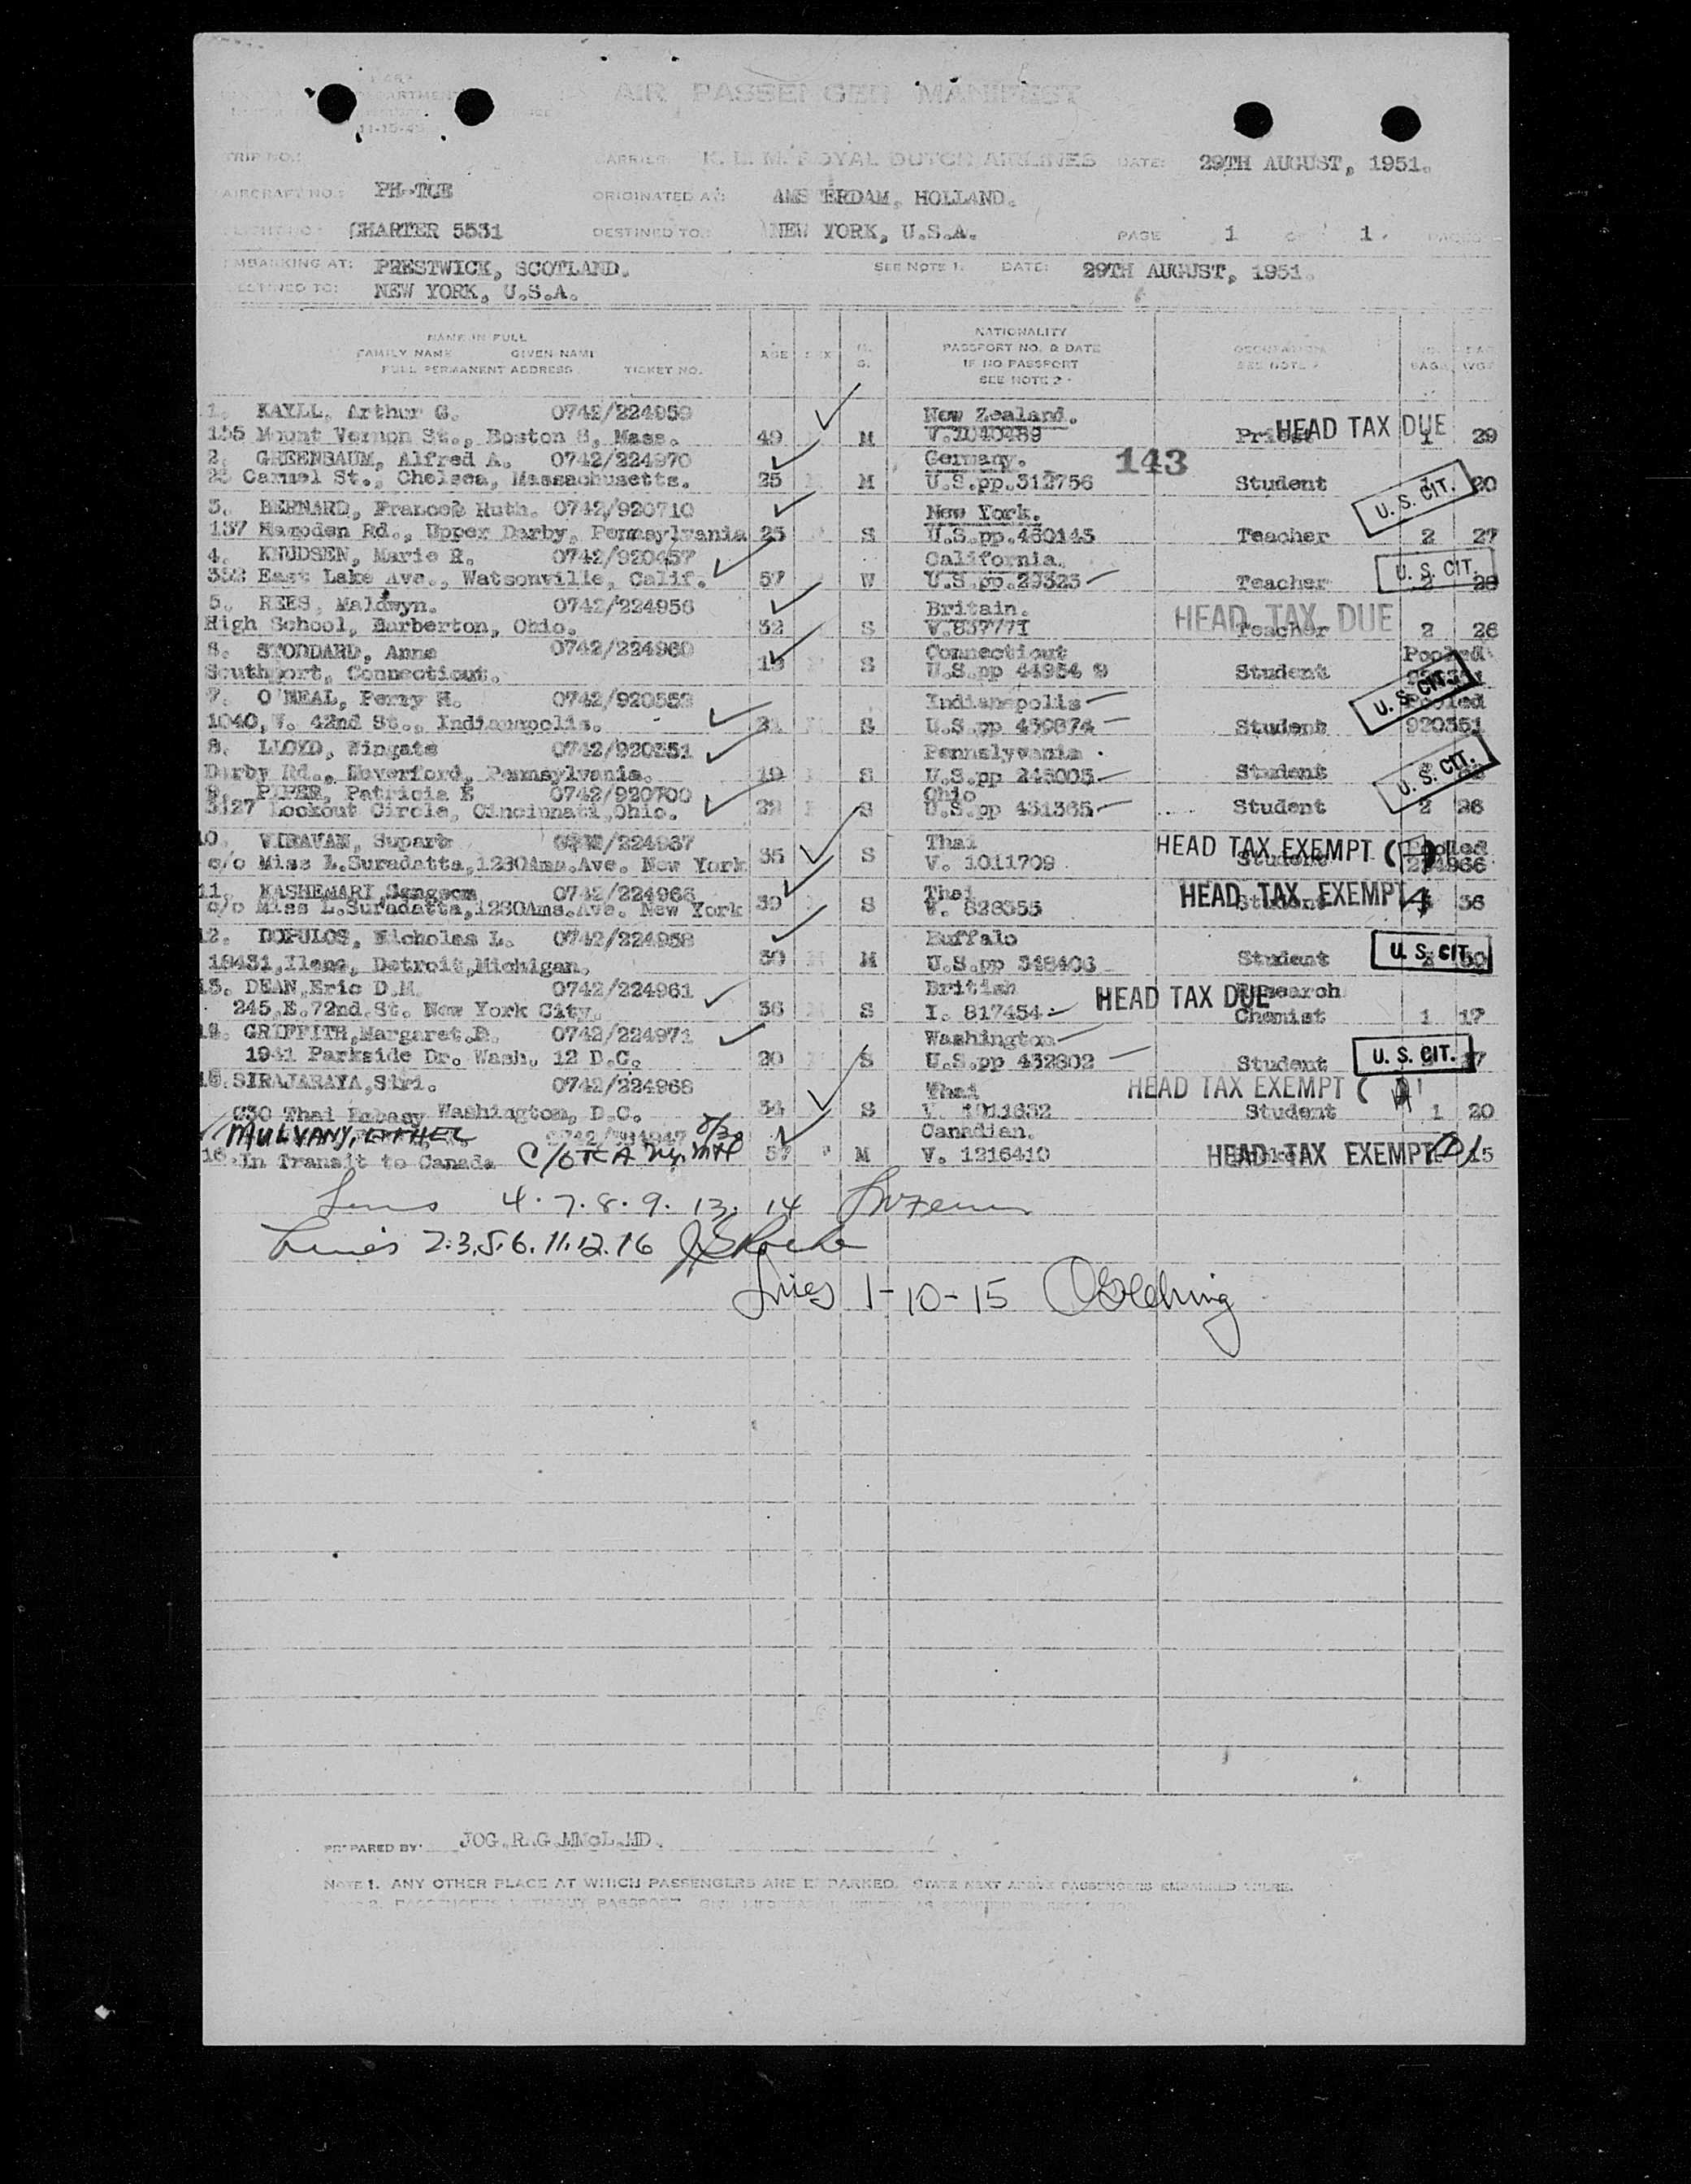 AIR PASSENGER MANIFEST
11-15-45
TRIP NO.: CARRIER: K. L. M. ROYAL DUTCH AIRLINES DATE: 29TH AUGUST, 1951.
AIRCRAFT NO.: PH-TCE ORIGINATED AT: AMSTERDAM, HOLLAND.
CHARTER 5531 DESTINED TO: NEW YORK, U.S.A. PAGE 1 OF 1. PAGES
EMBARKING AT: PRESTWICK, SCOTLAND. SEE NOTE 1. DATE: 29TH AUGUST, 1951.
DESTINED TO: NEW YORK, U.S.A.
NAME IN FULL
FAMILY NAME GIVEN NAME
FULL PERMANENT ADDRESS TICKET NO.
AGE SEX M. S.
NATIONALITY
PASSPORT NO. & DATE
IF NO PASSPORT
SEE NOTE 2
OCCUPATION
1. KAYLL, Arthur G. 0742/224959 New Zealand.
155 Mount Vernon St., Boston 8, Mass. 49 M Priest HEAD TAX DUE 1 29
2. GREENBAUM, Alfred A. 0742/224970 Germany. 143
25 Carmel St., Chelsea, Massachusetts. 25 M U.S.pp.312756 Student U. S. CIT. 20
3. BERNARD, Frances Ruth. 0742/920710 New York.
137 Marsden Rd., Upper Darby, Pennsylvania 25 S U.S.pp.460145 Teacher 2 27
4. KNUDSEN, Marie R. 0742/920457 California.
352 East Lake Ave., Watsonville, Calif. 57 W U.S.pp.29323 Teacher U. S. CIT. 28
5. REES, Maldwyn. 0742/224956 Britain.
High School, Barberton, Ohio. 32 S V.837771 Teacher HEAD TAX DUE 2 26
6. STODDARD, Anne 0742/224960 Connecticut Pooled
Southport, Connecticut. 19 S U.S.pp 44954 9 Student
7. O'NEAL, Perry H. 0742/920553 Indianapolis U. S. CIT. Pooled
1040, W. 42nd St., Indianapolis. 21 S U.S.pp 459874 Student 920351
8. LLOYD, Wingate 0742/920351 Pennslyvania
Darby Rd., Haverford, Pennsylvania. 19 S U.S.pp 246005 Student U. S. CIT.
9. PIPER, Patricia E 0742/920700 Ohio
3127 Lookout Circle, Cincinnati, Ohio. 22 S U.S.pp 431365 Student 2 26
10. VIRAVAN, Suparb /224967 Thai HEAD TAX EXEMPT Pooled
c/o Miss L.Suradatta,1230Ams.Ave. New York 35 S V. 1011709 Student 224966
11. KASHEMARI, Sangsom 0742/224966 Thai HEAD TAX EXEMPT
c/o Miss L.Suradatta,1230Ams.Ave. New York 39 S V. 828355 Student 36
12. DOPULOS, Nicholas L. 0742/224958 Buffalo
19431, Ilene, Detroit, Michigan. 30 M U.S.pp 348406 Student U. S. CIT.
13. DEAN, Eric D.M. 0742/224961 British HEAD TAX DUE Research
245, E. 72nd. St. New York City. 36 S I. 817454 Chemist 1 17
14. GRIFFITH, Margaret.D. 0742/224971 Washington
1941 Parkside Dr. Wash. 12 D.C. 20 S U.S.pp 432802 Student U. S. CIT. 37
15. SIRAJARAYA, Siri. 0742/224968 Thai HEAD TAX EXEMPT
C30 Thai Embasy Washington, D.C. 34 S V. 1011632 Student 1 20
MULVANY, ETHEL 8/30 Canadian.
16. In Transit to Canada C/O TCA 57 F M V. 1216410 HEAD TAX EXEMPT 15
Lines 4. 7. 8. 9. 13. 14
Lines 2. 3. 5. 6. 11. 12. 16
Lines 1-10-15
PREPARED BY: JOG.R.G.MMcL.MD.
NOTE 1. ANY OTHER PLACE AT WHICH PASSENGERS ARE EMBARKED. STATE NEXT ABOVE PASSENGERS EMBARKED THERE.